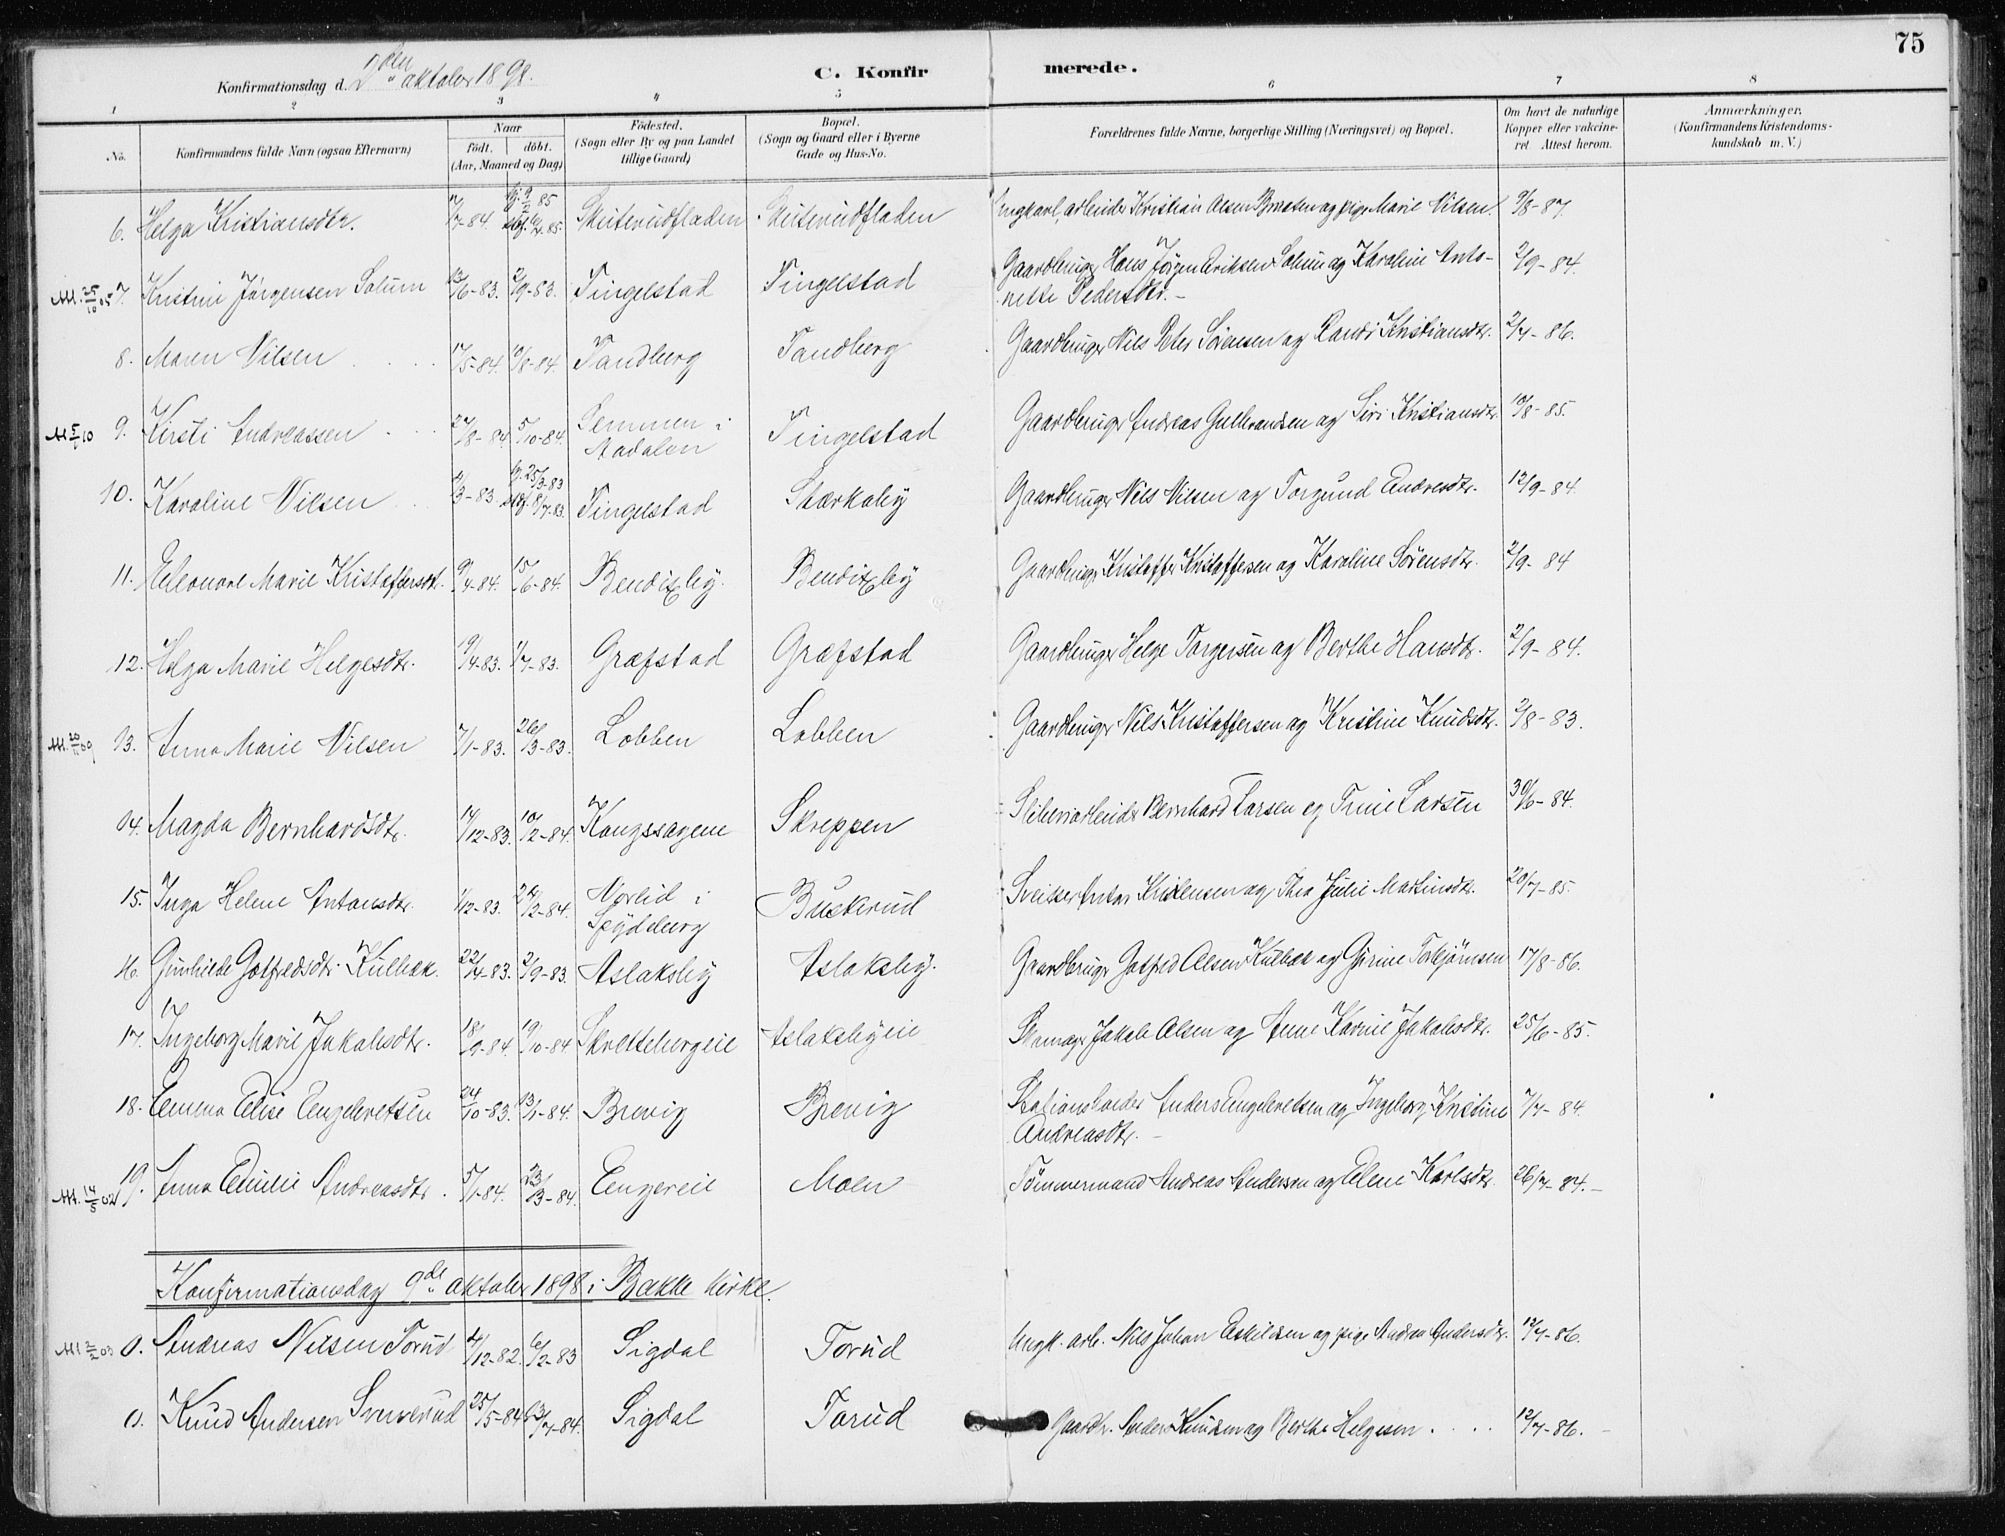 75
Konfirmationsdag d. 2den oktober 1898.
C. Konfirmerede.
1 2 3 4 5 6 7 8
No.
Konfirmandens fulde Navn (ogsaa Efternavn)
Naar
födt. döbt.
(Aar, Maaned og Dag)
Födested.
(Sogn eller By og paa Landet
tillige Gaard)
Bopæl.
(Sogn og Gaard eller i Byerne
Gade og Hus-No.
Forældrenes fulde Navne, borgerlige Stilling (Næringsvei) og Bopæl.
Om havt de naturlige
Kopper eller vakcine-
ret Attest herom.
Anmærkninger.
(Konfirmandens Kristendoms-
kundskab m. V.)
6. Helga Kristiansdtr. 7/7-84. hj. 9/2 85 Skuterudfladen Skuterudfladen Ungkarl, arbeider Kristian Olsen Braaten og pige Marie Nilsen. 9/8-87.
7. Kristine Jörgensen Solum 13/6-83. 2/9-83. Tingelstad Tingelstad Gaardbruger Hans Jörgen Eriksen Solum og Karoline Anto-
nette Pedersdtr. 2/9-84.
8. Maren Nilsen 17/5-84. 10/8-84. Tandberg Tandberg Gaardbruger Nils Peter Sörensen og Randi Kristiansdtr. 2/7-86.
9. Kirsti Andreassen 27/8-84 5/10-84. Semmen i
Aadalen Tingelstad Gaardbruger Andreas Gulbrandsen og Siri Kristiansdtr. 10/8-85.
10. Karoline Nilsen 1/3-83. hj. 25/3-83 stf. 8/7-83. Tingelstad Stærkeby Gaardbruger Nils Nilsen og Torgund Endresdtr. 12/9-84.
11. Eleonore Marie Kristoffersdt. 9/4-84. 15/6-84. Bendixby Bendixby Gaardbruger Kristoffer Kristoffersen og Karoline Sörensdtr. 2/9-84
12. Helga Marie Helgesdtr. 19/4-83. 1/7-83. Græfstad Græfstad Gaardbruger Helge Torgersen og Berthe Hansdtr. 2/9-84.
13. Anna Marie Nilsen 7/1-83. 26/3-83. Lobben Lobben Gaardbruger Nils Kristoffersen og Kristine Knudsdtr. 2/8-83.
14. Magda Bernhardsdtr. 14/12-83. 10/2-84. Kongssagene Skreppen Sliberiarbeider Bernhard Larsen og Trine Larsen 30/6-84.
15. Inga Helene Antonsdtr. 1/12-83. 24/2-84. Norlid i
Spydeberg Buskerud Sveitser Anton Kristensen og Thea Julie Martinsdtr. 20/7-85.
16. Gunhilde Gotfredsdtr. Kulbæk. 22/4-83. 2/9-83. Aslaksby Aslaksby. Gaardbruger Gotfred Olsen Kulbæk og Gurine Torbjörnsen 17/8-86.
17. Ingeborg Marie Jakobsdtr. 18/9-84. 19/10-84. Skrettebergeie Aslaksbyeie Skomager Jakob Olsen og Anne Karine Jakobsdtr. 25/6-85.
18. Emma Elise Engebretsen 24/10-83. 13/1-84. Brevig Brevig Stationsholder Anders Engebretsen og Ingeborg Kristine
Andreasdtr. 7/7-84.
19. Anna Emilie Andreasdtr. 5/1-84. 23/3-84. Engereie Moen Tömmermand Andreas Andersen og Elene Karlsdtr. 26/7-84.
Konfirmationsdag 9de oktober 1898 i Bække kirke.
Andreas Nilsen Torud 4/12-82. 6/2-83 Sigdal Torud Ungk. arb. Nils Johan Eskildsen og pige Andrea Andersdtr. 12/7-86.
Knud Andersen 25/5-84 13/7-84. Sigdal Torud Gaardbr. Anders Knudsen og Berthe Helgesen 12/7-86.